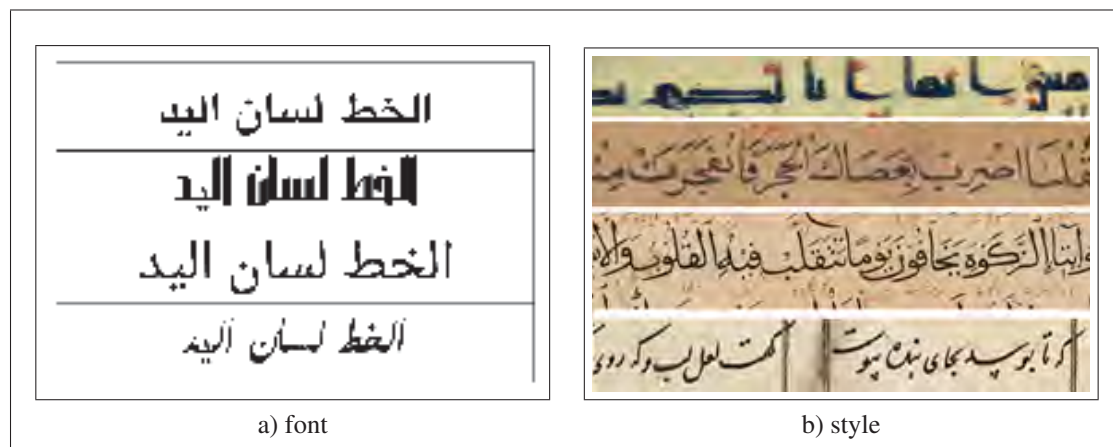 الخط لسان اليد
الخط لسان اليد
الخط لسان اليد
الخط لسان اليد
a) font
قلنا اضرب بعصاك الحجر فانفجرت
وايتاء الزكوة يخافون يوما تتقلب فيه القلوب
که تا بوسد بجای بنده
لعل لب روی
b) style